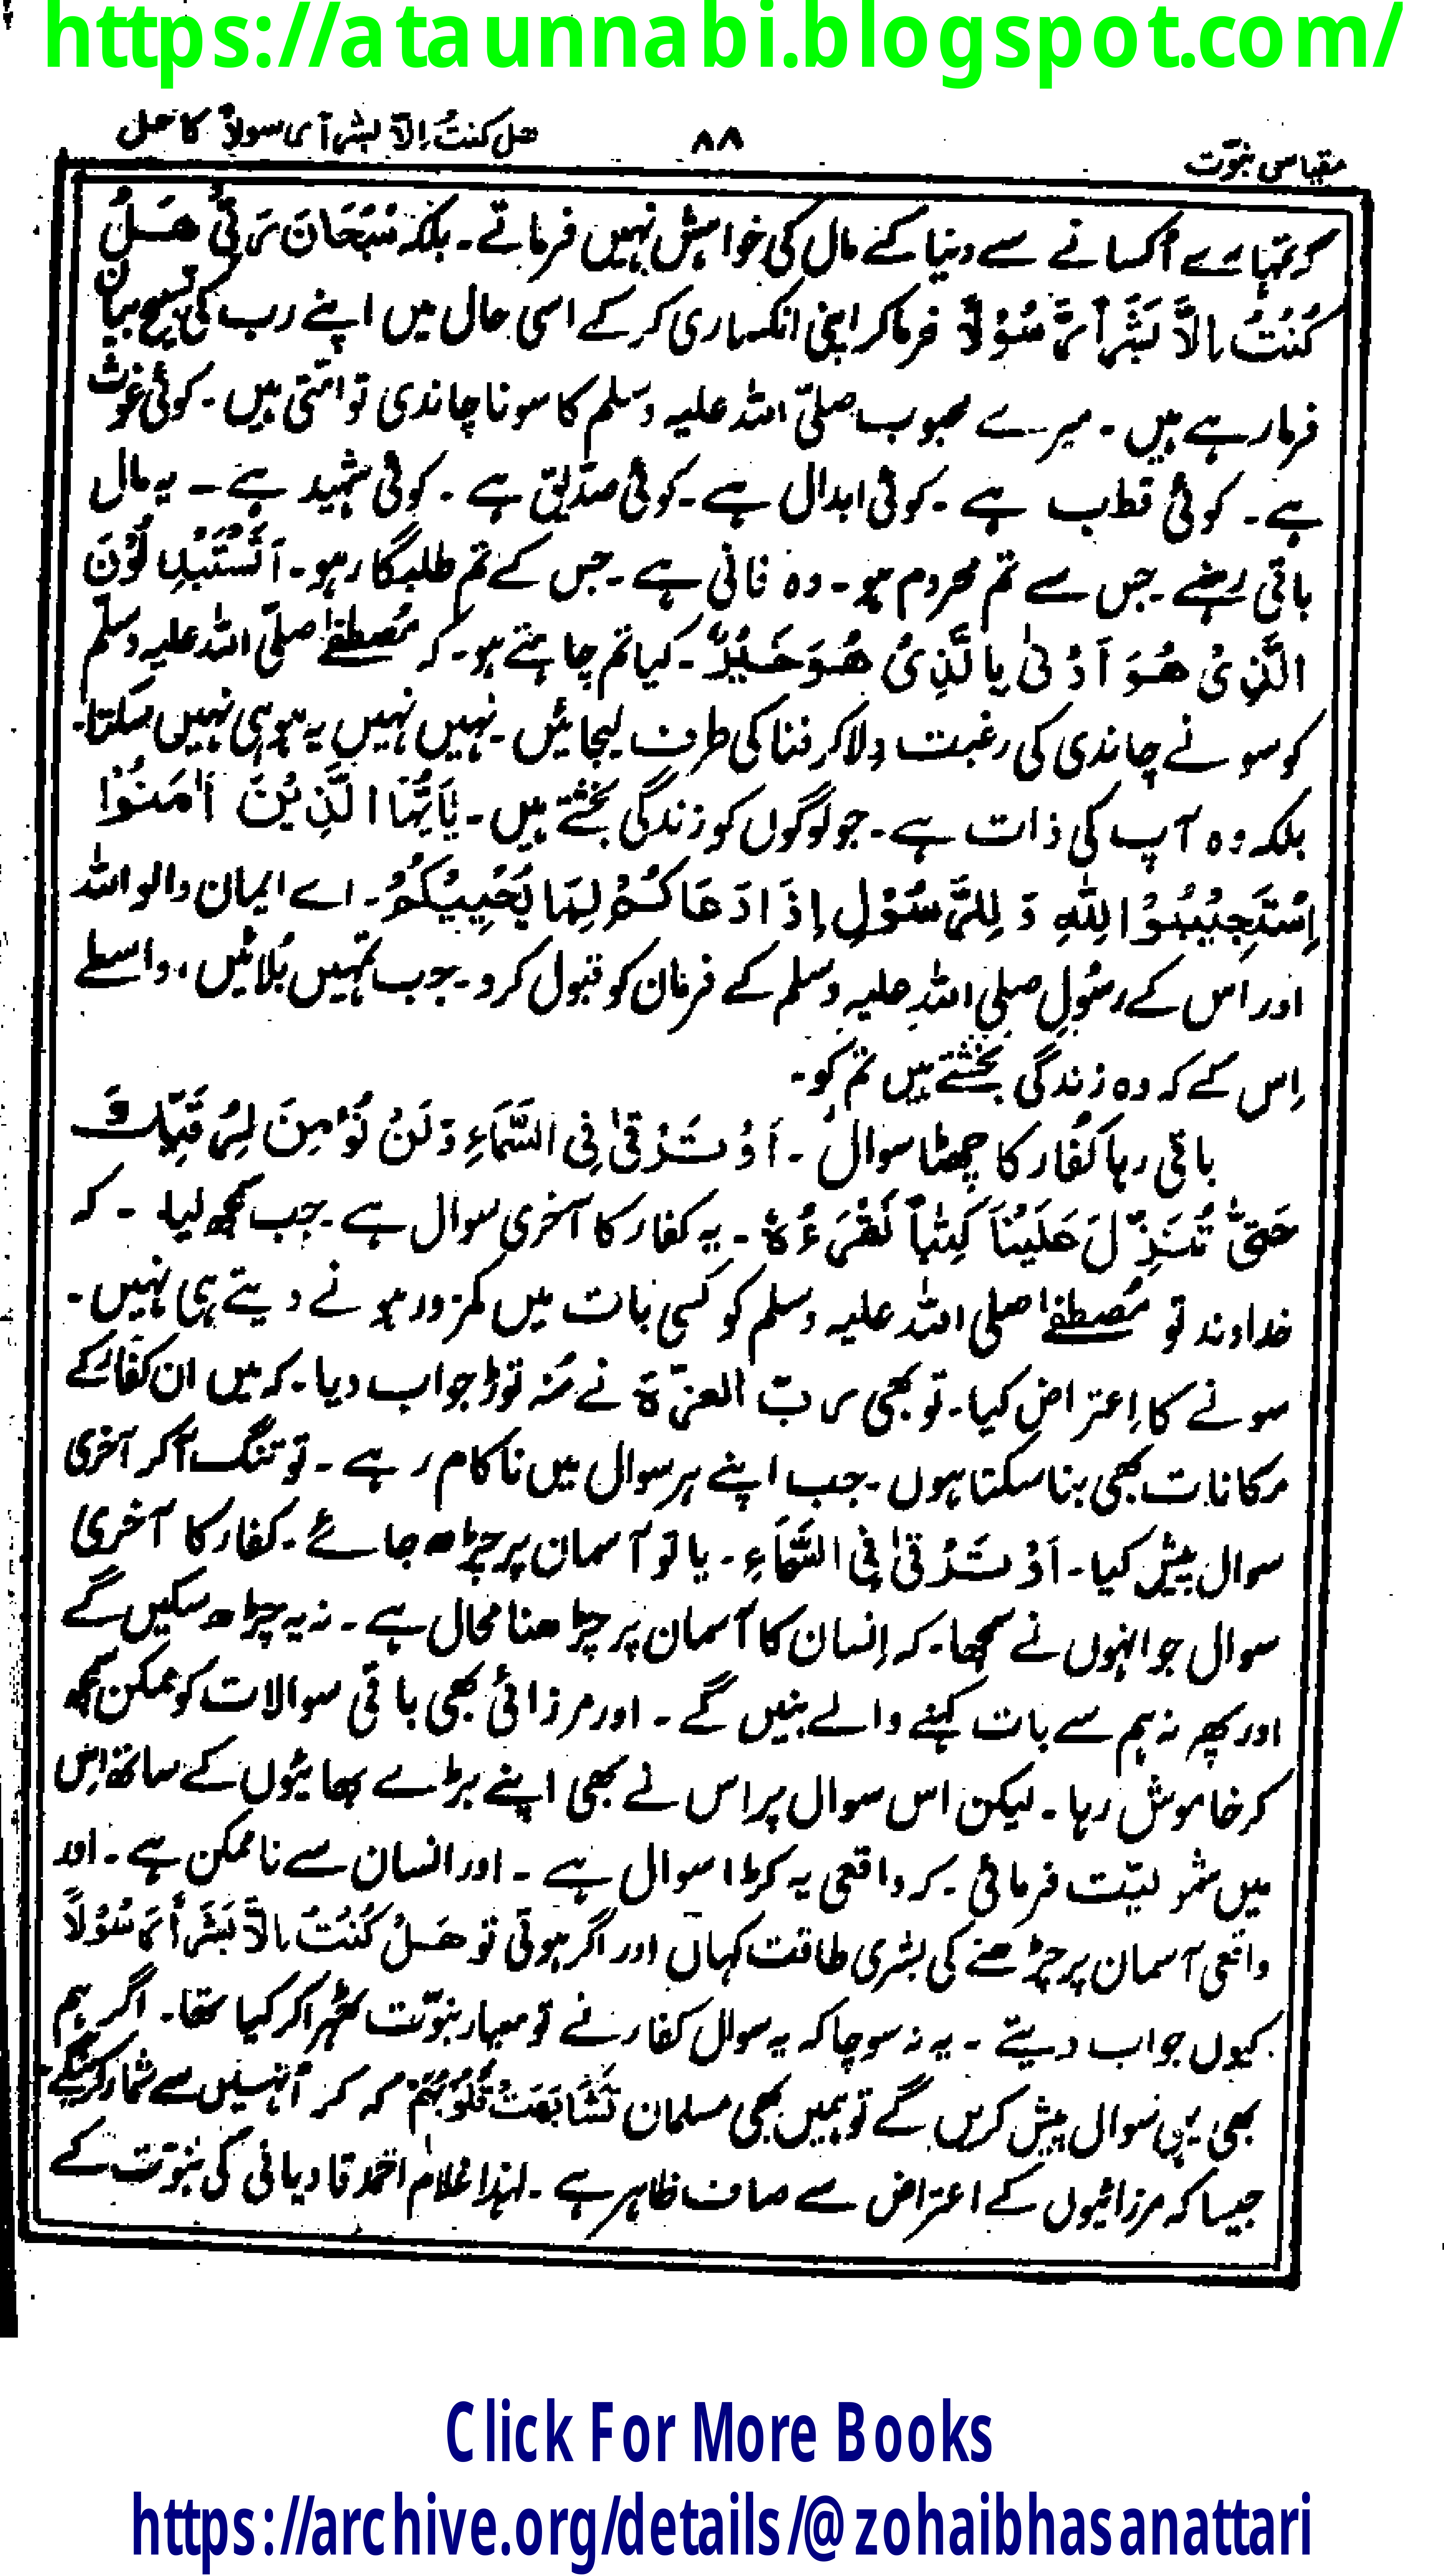 https://ataunnabi.blogspot.com/
مقیاسِ نبوّت
۸۸
ھل کنتُ اِلّا بشراً رسولاً کا حل
کر تمہارے اُکسانے سے دنیا کے مال کی خواہش نہیں فرماتے۔ بلکہ سُبحَانَ رَبِّیْ ھَلْ
کُنْتُ اِلَّا بَشَراً رَّسُوْلاً فرما کر اپنی انکساری کر کے اسی حال میں اپنے رب کی تسبیح بیان
فرما رہے ہیں۔ میرے محبوب صلیّ اللہ علیہ وسلم کا سونا چاندی تو امتّی ہیں۔ کوئی غوث
ہے۔ کوئی قطب ہے۔ کوئی ابدال ہے۔ کوئی صدّیق ہے۔ کوئی شہید ہے۔ یہ مال
باقی رہنے۔ جس سے تم محروم ہو۔ وہ فانی ہے۔ جس کے تم طلبگار ہو۔ اَتَسْتَبْدِلُوْنَ
الَّذِیْ ھُوَ اَدْنیٰ بِالَّذِیْ ھُوَ خَیْرٌ۔ کیا تم چاہتے ہو۔ کہ مُصطفےٰ صلیّ اللہ علیہ وسلم
کو سونے چاندی کی رغبت دلا کر فنا کی طرف لیجائیں۔ نہیں نہیں یہ ہو ہی نہیں سکتا۔
بلکہ وہ آپ کی ذات ہے۔ جو لوگوں کو زندگی بخشتے ہیں۔ یٰاَیُّھَا الَّذِیْنَ اٰمَنُوْا
اِسْتَجِیْبُوْا لِلّٰہِ وَ لِلرَّسُوْلِ اِذَا دَعَاکُمْ لِمَا یُحْیِیْکُمْ۔ اے ایمان والو اللہ
اور اس کے رسُولِ صلی اللہ علیہ وسلم کے فرمان کو قبول کرو۔ جب تمہیں بُلائیں، واسطے
اِس کے کہ وہ زندگی بخشتے ہیں تم کو۔
باقی رہا کُفّار کا چھٹا سوال۔ اَوْ تَرْقیٰ فِی السَّمَاءِ وَلَنْ نُؤْمِنَ لِرُقِیِّکَ
حَتّٰی تُنَزِّلَ عَلَیْنَا کِتٰباً نَقْرَءُہٗ۔ یہ کفار کا آخری سوال ہے۔ جب سمجھ لیا۔ کہ
خداوند تو مُصطفےٰ صلی اللہ علیہ وسلم کو کسی بات میں کمزور ہونے دیتے ہی نہیں۔
سونے کا اِعتراض کیا۔ تو بھی ربّ العزّۃ نے مُنہ توڑ جواب دیا۔ کہ میں ان کفار کے
مکانات بھی بنا سکتا ہوں۔ جب اپنے ہر سوال میں ناکام رہے۔ تو تنگ آکر آخری
سوال پیش کیا۔ اَوْ تَرْقیٰ فِی السَّمَاءِ۔ یا تو آسمان پر چڑھ جائے۔ کفار کا آخری
سوال جو انہوں نے سمجھا۔ کہ اِنسان کا آسمان پر چڑھنا محال ہے۔ نہ یہ چڑھ سکیں گے
اور پھر نہ ہم سے بات کہنے والے بنیں گے۔ اور مرزائی بھی باقی سوالات کو ممکن سمجھ
کر خاموش رہا۔ لیکن اس سوال پر اس نے بھی اپنے بڑے بھائیوں کے ساتھ اِس
میں شمولیّت فرمائی۔ کہ واقعی یہ کڑا سوال ہے۔ اور انسان سے ناممکن ہے۔ اور
واقعی آسمان پر چڑھنے کی بشری طاقت کہاں اور اگر ہوتی تو ھَلْ کُنْتُ اِلَّا بَشَراً رَسُوْلاً
کیوں جواب دیتے۔ یہ نہ سوچا کہ یہ سوال کفار نے تو معیار نبوّت ٹھہرا کر کیا تھا۔ اگر ہم
بھی یہی سوال پیش کریں گے تو ہمیں بھی مسلمان تَشَابَھَتْ قُلُوْبُھُمْ کہہ کر اُنہیں سے شمار کرینگے۔
جیسا کہ مرزائیوں کے اعتراض سے صاف ظاہر ہے۔ لہٰذا غلام احمد قادیانی کی نبوّت کے
Click For More Books
https://archive.org/details/@zohaibhasanattari